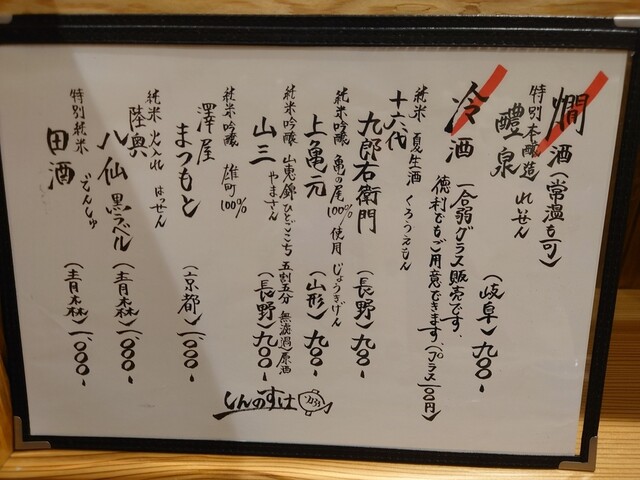 燗酒(常温も可)
特別本醸造 れいせん
醴泉 (岐阜)九〇〇-
冷酒 一合弱グラス販売です。
徳利でもご用意できます。(プラス一〇〇円)
純米 夏生酒 くろうえもん
十六代九郎右衛門 (長野)九〇〇-
純米吟醸 亀の尾100%使用 じょうきげん
上亀元 (山形)九〇〇-
純米吟醸 山恵錦ひとごこち 五割五分 無濾過原酒
山三 やまさん (長野)九〇〇-
純米吟醸 雄町100%
澤屋まつもと (京都)一、〇〇〇-
純米 火入れ はっせん
陸奥八仙 黒ラベル (青森)一、〇〇〇-
特別純米 でんしゅ
田酒 (青森)一、〇〇〇-
しんのすけ